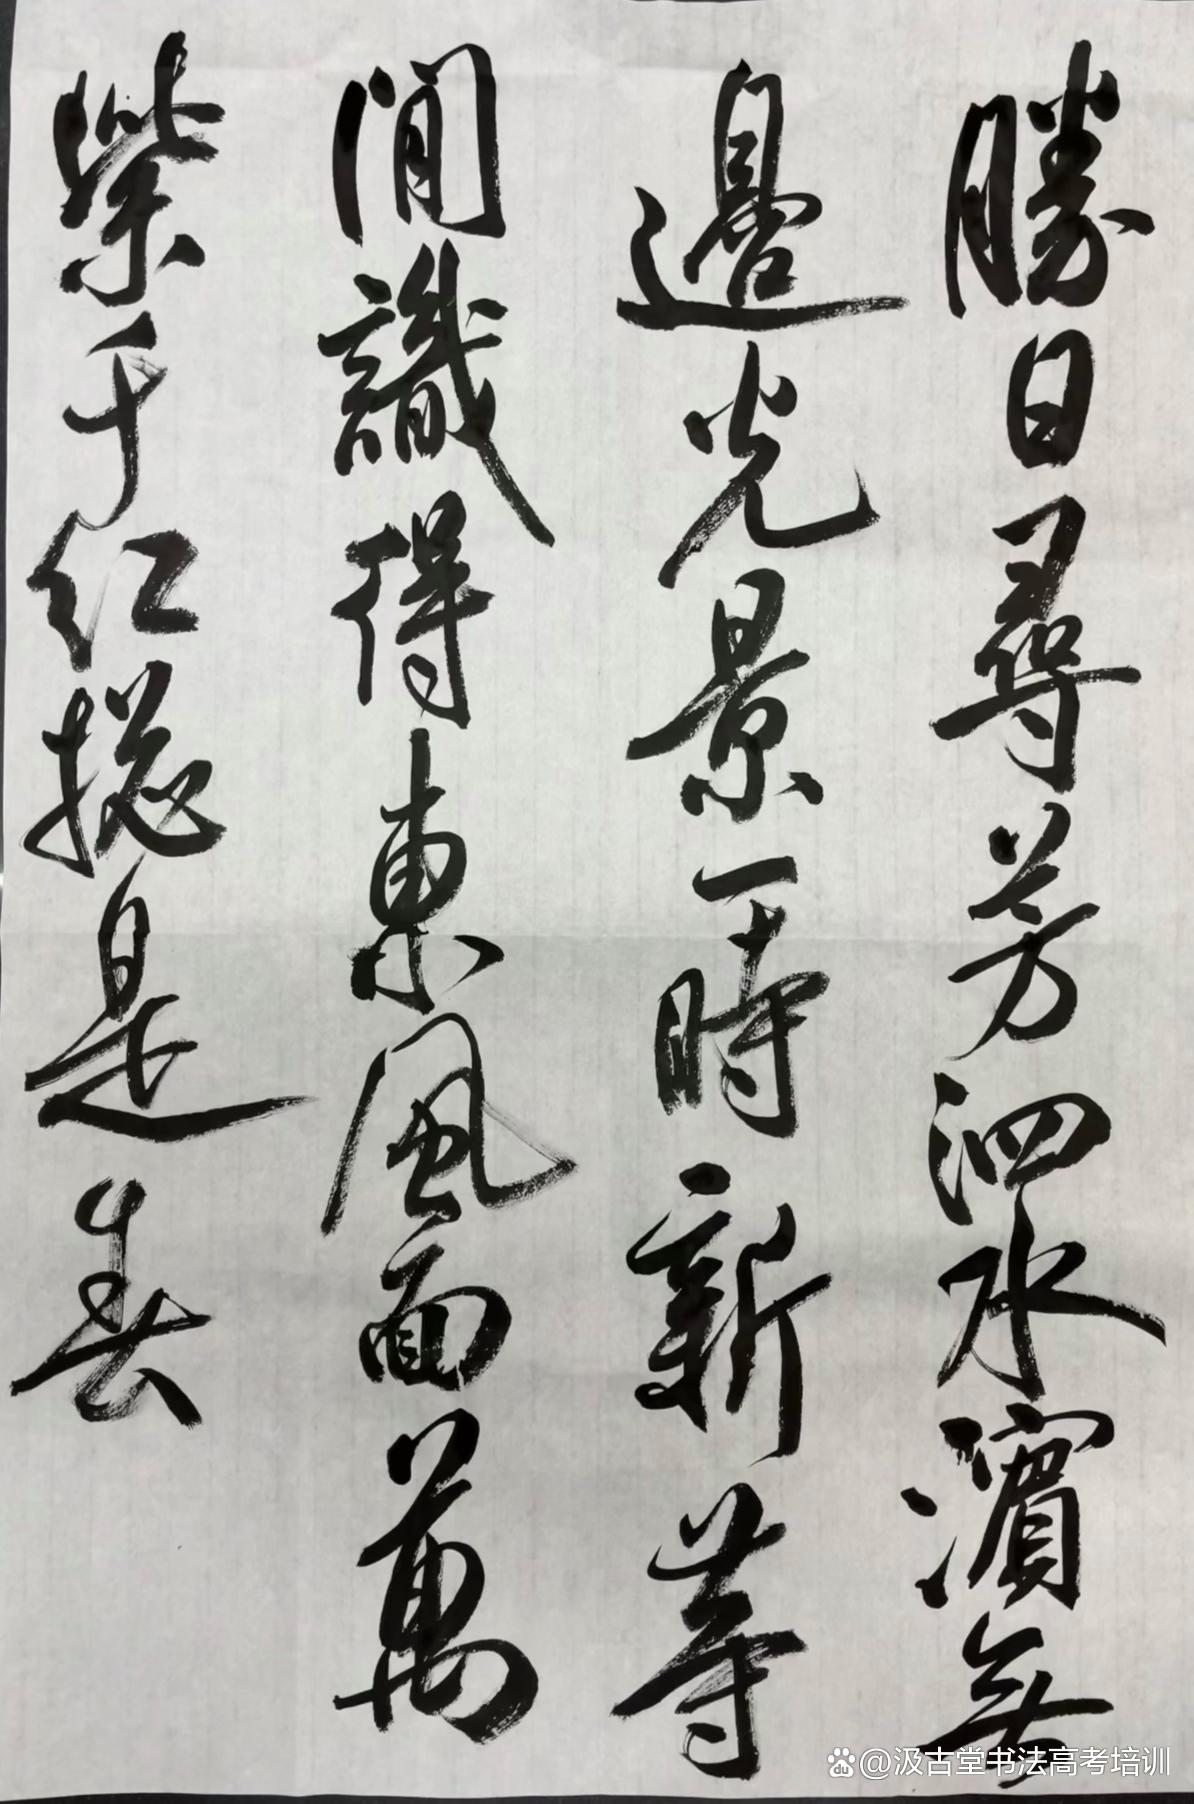 勝日尋芳泗水濱無
邊光景一時新等
閒識得東風面萬
紫千红揔是春
@汲古堂书法高考培训